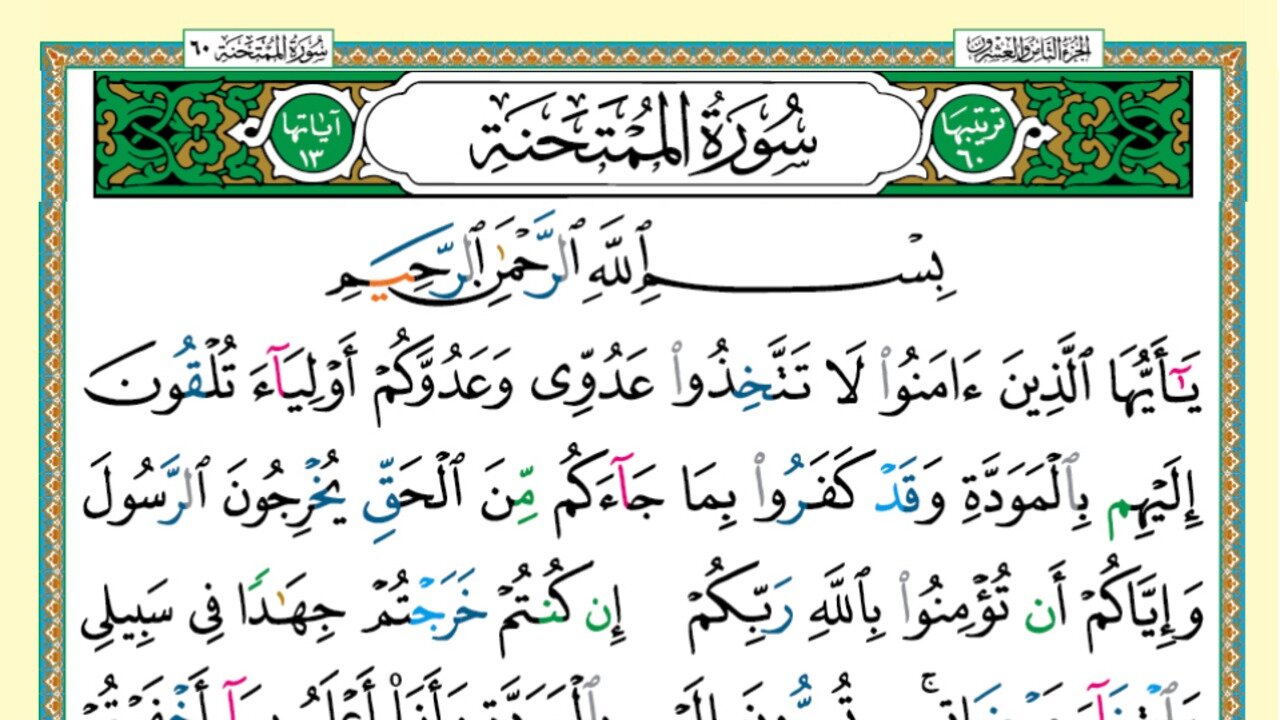 الجزء الثامن والعشرون
سورة الممتحنة ٦٠
ترتيبها ٦٠
سُورَةُ الْمُمْتَحَنَةِ
آياتها ١٣
بِسْمِ ٱللَّهِ ٱلرَّحْمَٰنِ ٱلرَّحِيمِ
يَٰٓأَيُّهَا ٱلَّذِينَ ءَامَنُوا۟ لَا تَتَّخِذُوا۟ عَدُوِّى وَعَدُوَّكُمْ أَوْلِيَآءَ تُلْقُونَ
إِلَيْهِم بِٱلْمَوَدَّةِ وَقَدْ كَفَرُوا۟ بِمَا جَآءَكُم مِّنَ ٱلْحَقِّ يُخْرِجُونَ ٱلرَّسُولَ
وَإِيَّاكُمْ أَن تُؤْمِنُوا۟ بِٱللَّهِ رَبِّكُمْ إِن كُنتُمْ خَرَجْتُمْ جِهَٰدًا فِى سَبِيلِى